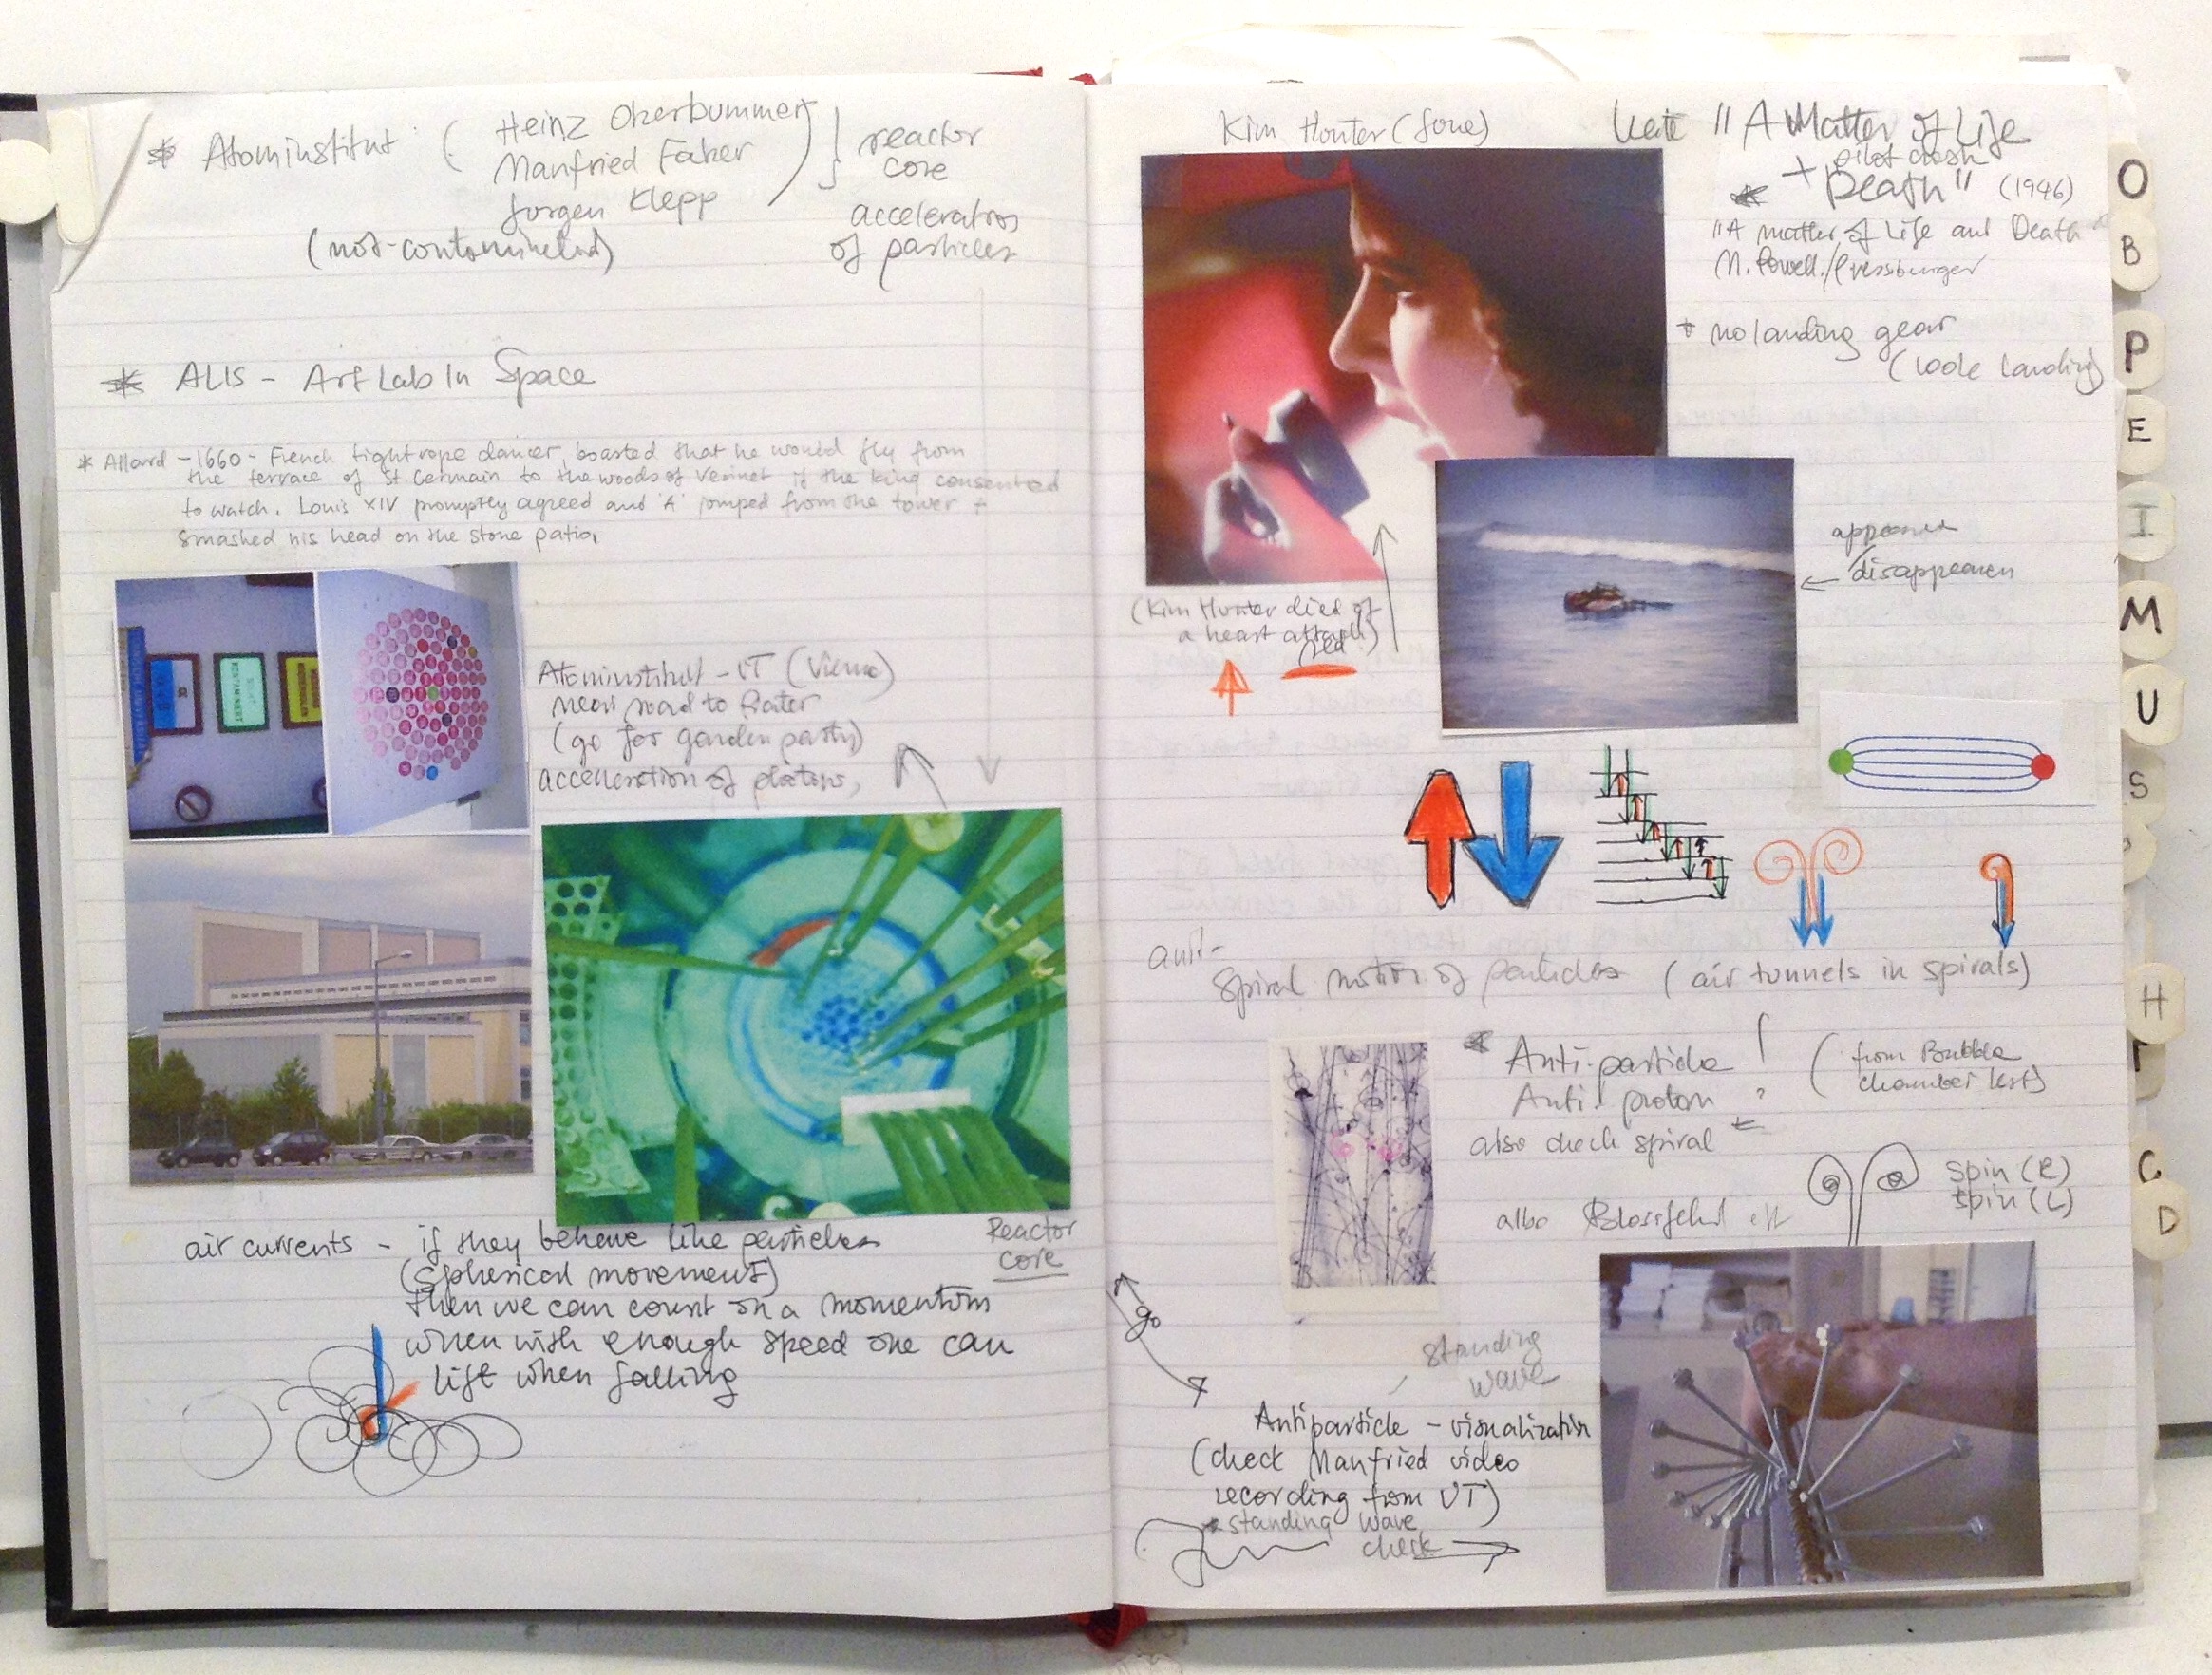 * Atominstitut (Heinz Okerbummer
Manfried Faber
Jurgen Klepp) } reactor
core
(not-contaminated)
acceleration
of particles
* ALIS - Art Lab In Space
* Allard - 1660 - French tightrope dancer, boasted that he would fly from
the terrace of St Germain to the woods of Vesinet if the king consented
to watch. Louis XIV promptly agreed and 'A' jumped from the tower +
smashed his head on the stone patio.
Atominstitut - UT (Vienna)
near road to Prater
(go for garden party)
acceleration of
Reactor
core
air currents - if they behave like particles
(spherical movement)
then we can count on a momentum
when with enough speed one can
lift when falling
Kim Hunter
"A Matter of Life
pilot crash
* + Death" (1946)
"A matter of Life and Death"
M. Powell/Pressburger
+ no landing gear
landing)
disappearen
(Kim Hunter died of
a heart attack)
(red)
anti-
spiral motion of particles (air tunnels in spirals)
* Anti-particle !
Anti-proton ?
also check spiral
(from Bubble
chamber test)
spin (R)
spin (L)
also Blossfeldt
go
standing
wave
Antiparticle - visualization
(check Manfried video
recording from UT)
* standing wave
check
O
B
P
E
I
M
U
S
H
C
D